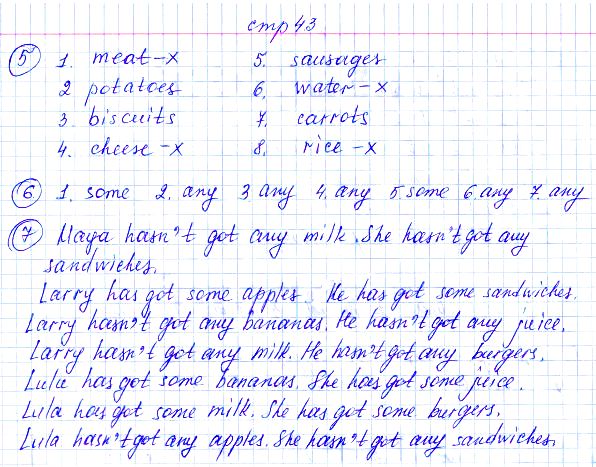 стр 43
5 1. meat-x 5. sausages
2 potatoes 6. water-x
3. biscuits 7. carrots
4. cheese-x 8. rice-x
6 1. some 2. any 3. any 4. any 5. some 6. any 7. any
7 Maya hasn't got any milk. She hasn't got any
sandwiches.
Larry has got some apples. He has got some sandwiches.
Larry hasn't got any bananas. He hasn't got any juice.
Larry hasn't got any milk. He hasn't got any burgers.
Lulu has got some bananas. She has got some juice.
Lula has got some milk. She has got some burgers.
Lula hasn't got any apples. She hasn't got any sandwiches.